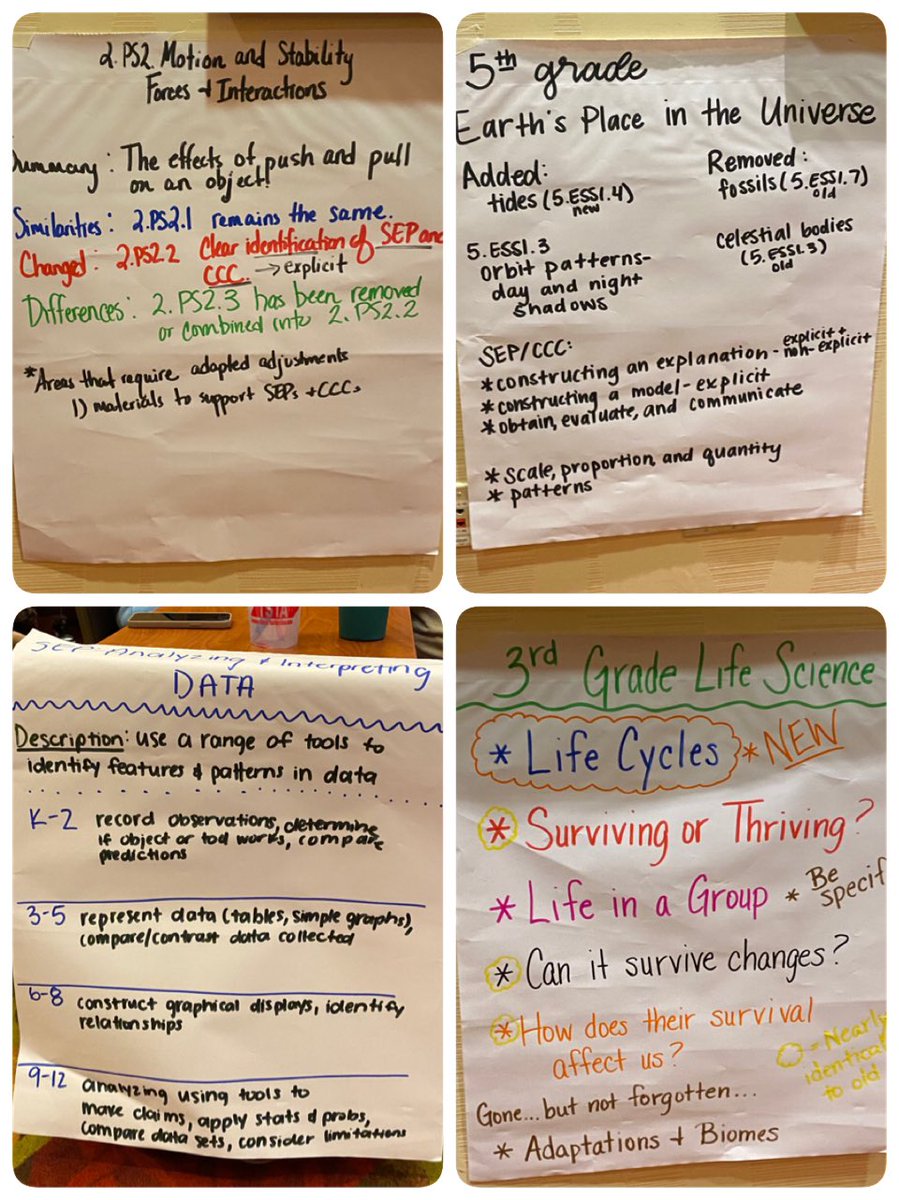 2.PS2. Motion and Stability
Forces + Interactions
Summary: The effects of push and pull
on an object!
Similarities: 2.PS2.1 remains the same.
Changed: 2.PS2.2 Clear identification of SEP and
CCC. → explicit
Differences: 2.PS2.3 has been removed
or combined into 2.PS2.2
*Areas that require adopted adjustments
1) materials to support SEPs + CCCs
5th grade
Earth's Place in the Universe
Added:
tides (5.ESS1.4)
new
5.ESS1.3
orbit patterns-
day and night
shadows
Removed:
fossils (5.ESS1.7)
old
celestial bodies
(5.ESS1.3)
old
SEP/CCC:
*constructing an explanation - explicit +
non-explicit
*constructing a model - explicit
*obtain, evaluate, and communicate
*Scale, proportion, and quantity
*patterns
SEP-Analyzing + Interpreting
DATA
Description: use a range of tools to
identify features & patterns in data
K-2 record observations, determine
if object or tool works, compare
predictions
3-5 represent data (tables, simple graphs),
compare/contrast data collected
6-8 construct graphical displays, identify
relationships
9-12 analyzing using tools to
make claims, apply stats & probs,
compare data sets, consider limitations
3rd Grade Life Science
* Life Cycles * NEW
* Surviving or Thriving?
* Life in a Group * Be
specif
* Can it survive changes?
* How does their survival
affect us?
O = Nearly
identical
to old
Gone...but not forgotten...
* Adaptations + Biomes